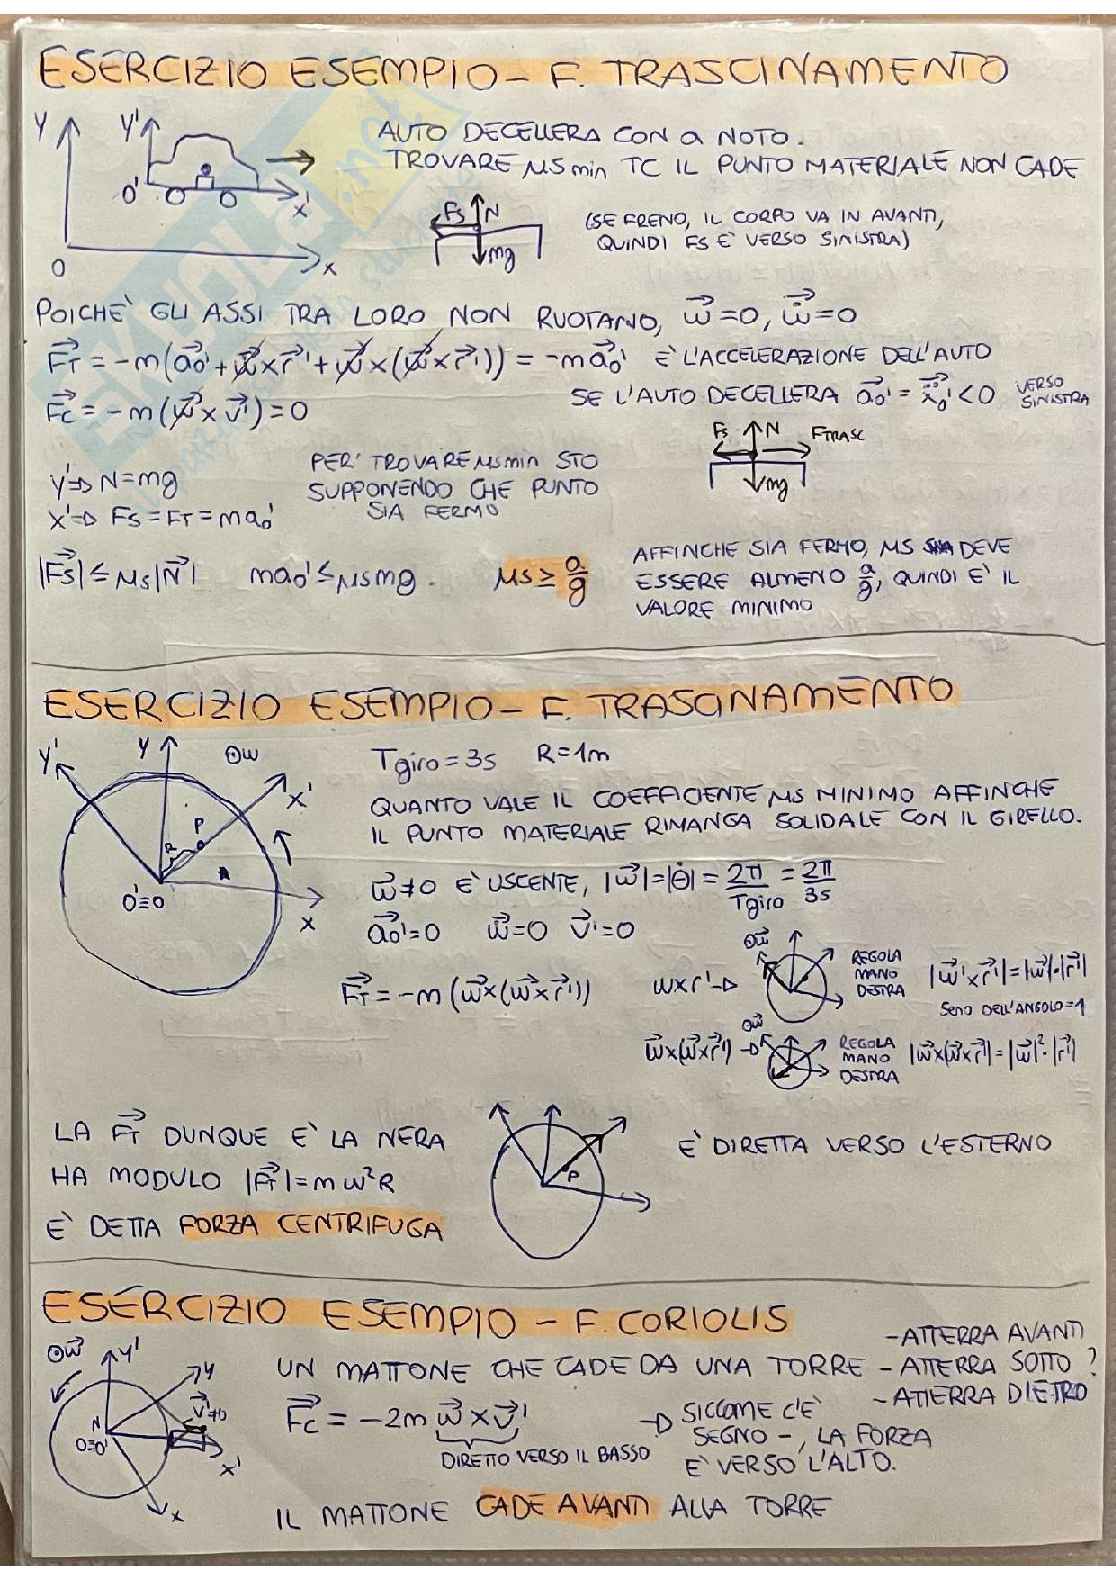 ESERCIZIO ESEMPIO - F. TRASCINAMENTO
Y Y' O' X' O X
AUTO DECELLERA CON a NOTO.
TROVARE μs min TC IL PUNTO MATERIALE NON CADE
Fs N mg
(SE FRENO, IL CORPO VA IN AVANTI,
QUINDI FS E' VERSO SINISTRA)
POICHE' GLI ASSI TRA LORO NON RUOTANO, ω⃗=0, ω̇⃗=0
F⃗T = -m(a⃗o' + ω̇⃗×r⃗' + ω⃗×(ω⃗×r⃗')) = -ma⃗o' E' L'ACCELERAZIONE DELL'AUTO
F⃗c = -m(ω⃗×v⃗')=0
SE L'AUTO DECELLERA a⃗o' = ẍ⃗o' <0 VERSO
SINISTRA
Fs N FTRASC
mg
Y'=> N=mg
X'=> FS=FT=mao'
PER TROVARE μsmin STO
SUPPONENDO CHE PUNTO
SIA FERMO
|F⃗s| ≤ μs|N⃗| mao' ≤ μsmg. μs ≥ a/g
AFFINCHE SIA FERMO, MS DEVE
ESSERE ALMENO a/g, QUINDI E' IL
VALORE MINIMO
ESERCIZIO ESEMPIO - F. TRASCINAMENTO
Y' Y ⊙ω X' P R O'≡O X
Tgiro=3s R=1m
QUANTO VALE IL COEFFICIENTE μs MINIMO AFFINCHE
IL PUNTO MATERIALE RIMANGA SOLIDALE CON IL GIRELLO.
ω⃗≠0 E' USCENTE, |ω⃗|=|θ̇|= 2π/Tgiro = 2π/3s
a⃗o'=0 ω̇⃗=0 v⃗'=0
F⃗T = -m(ω⃗×(ω⃗×r⃗'))
ω×r' -> ⊙ω⃗ REGOLA
MANO
DESTRA
|ω⃗'×r⃗'|=|ω⃗|·|r⃗'|
SENO DELL'ANGOLO=1
ω⃗×(ω⃗×r⃗') -> ⊙ω⃗ REGOLA
MANO
DESTRA
|ω⃗×(ω⃗×r⃗')|=|ω⃗|²·|r⃗'|
LA F⃗T DUNQUE E' LA NERA
HA MODULO |F⃗T|=mω²R
E' DETTA FORZA CENTRIFUGA
P
E' DIRETTA VERSO L'ESTERNO
ESERCIZIO ESEMPIO - F. CORIOLIS
⊙ω⃗ Y' Y v⃗'≠0 N O≡O' X' X
UN MATTONE CHE CADE DA UNA TORRE
- ATTERRA AVANTI
- ATTERRA SOTTO ?
- ATTERRA DIETRO
F⃗c = -2m ω⃗ × v⃗'
DIRETTO VERSO IL BASSO
-> SICCOME C'E'
SEGNO -, LA FORZA
E' VERSO L'ALTO.
IL MATTONE CADE AVANTI ALLA TORRE